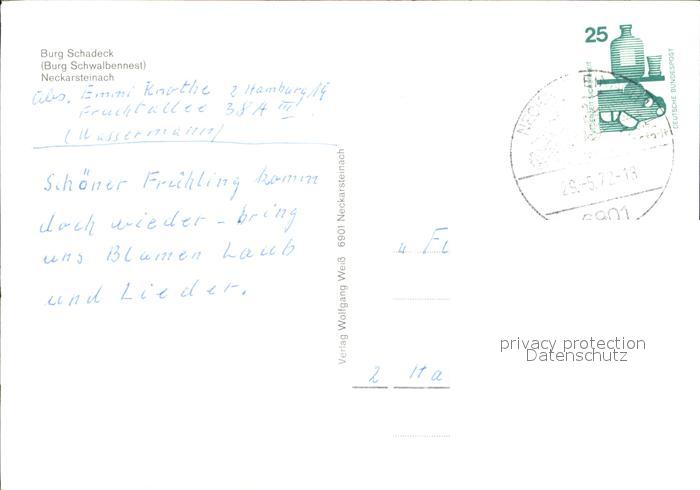 Burg Schadeck
(Burg Schwalbennest)
Neckarsteinach
Abs. Emmi Knothe 2 Hamburg/19
Fruchtallee 38A III.
(Wassermann)
Schöner Frühling komm
doch wieder - bring
uns Blumen Laub
und Lieder.
Verlag Wolfgang Weiß 6901 Neckarsteinach
25
DEUTSCHE BUNDESPOST
29.-5.72-18
6901
2 Ha
privacy protection
Datenschutz